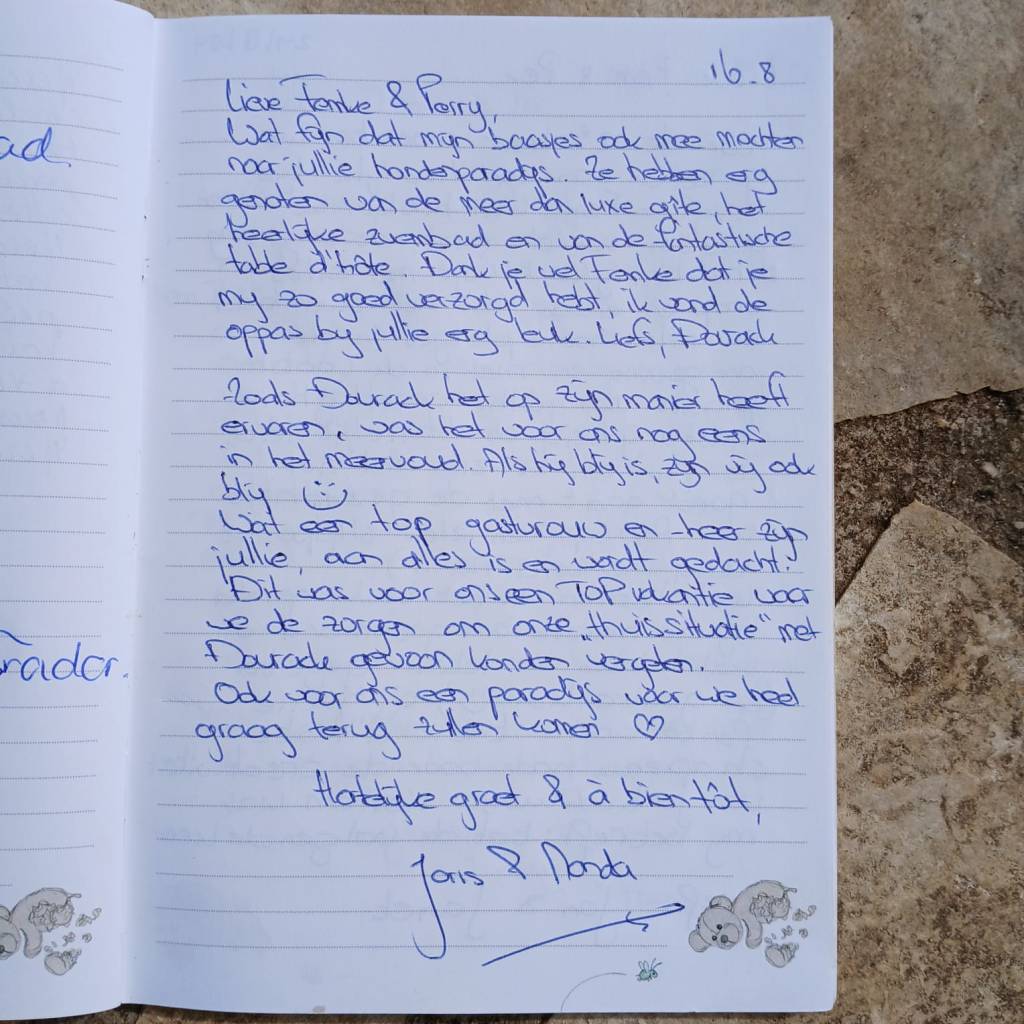 ad.
rador.
16.8
Lieve Femke & Perry,
Wat fijn dat mijn baasjes ook mee mochten
naar jullie hondenparadijs. Ze hebben erg
genoten van de meer dan luxe gîte, het
heerlijke zwembad en van de fantastische
table d'hôte. Dank je wel Femke dat je
mij zo goed verzorgd hebt, ik vond de
oppas bij jullie erg leuk. Liefs, Dourack
Zoals Dourack het op zijn manier heeft
ervaren, was het voor ons nog eens
in het meervoud. Als hij blij is, zijn wij ook
blij ☺
Wat een top gastvrouw en -heer zijn
jullie, aan alles is en wordt gedacht!
Dit was voor ons een TOP vakantie waar
we de zorgen om onze „thuissituatie" met
Dourack gewoon konden vergeten.
Ook voor ons een paradijs waar we heel
graag terug zullen komen ♡
Hartelijke groet & à bientôt,
Joris & Manda